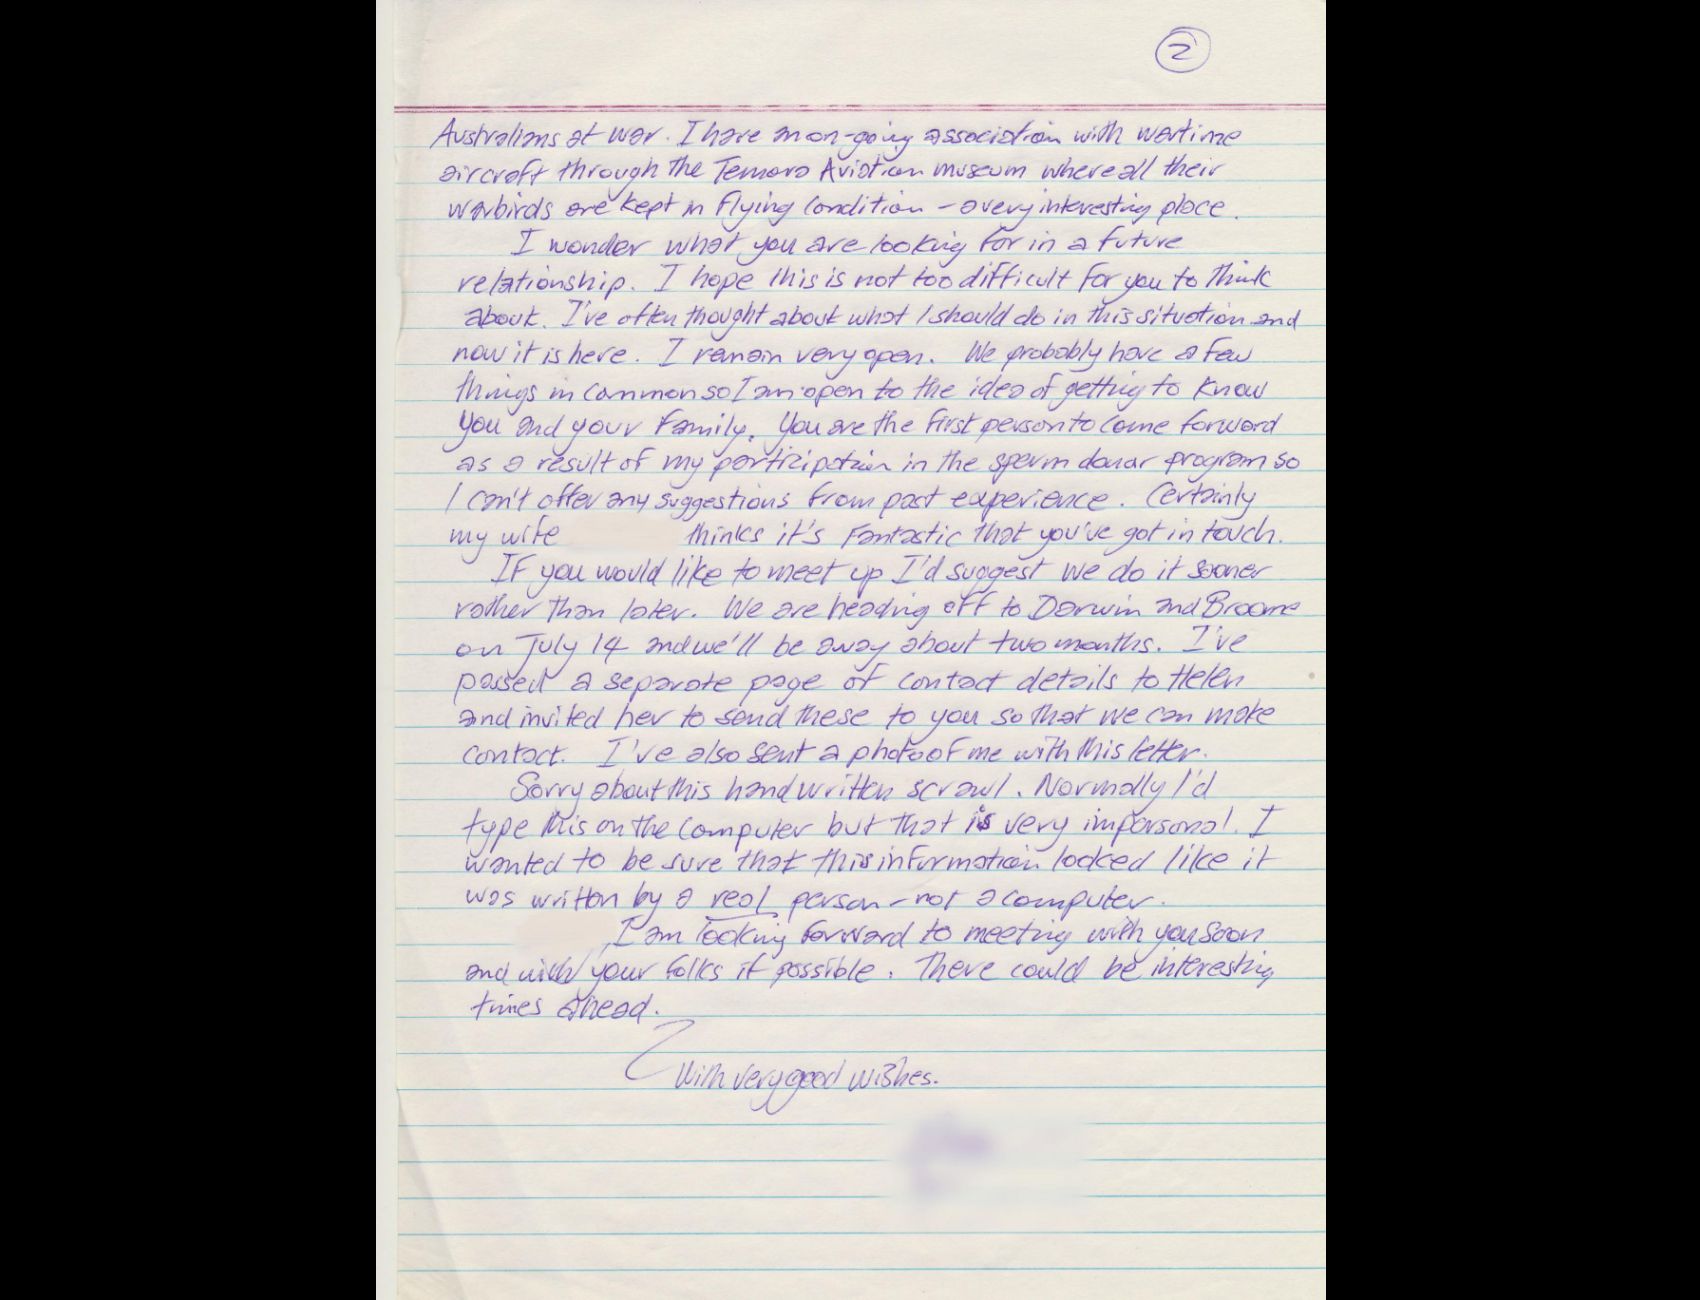 2
Australians at war. I have an on-going association with wartime
aircraft through the Temora Aviation museum where all their
warbirds are kept in flying condition - a very interesting place.
I wonder what you are looking for in a future
relationship. I hope this is not too difficult for you to think
about. I've often thought about what I should do in this situation and
now it is here. I remain very open. We probably have a few
things in common so I am open to the idea of getting to know
you and your family. You are the first person to come forward
as a result of my participation in the sperm donor program so
I can't offer any suggestions from past experience. Certainly
my wife thinks it's fantastic that you've got in touch.
If you would like to meet up I'd suggest we do it sooner
rather than later. We are heading off to Darwin and Broome
on July 14 and we'll be away about two months. I've
passed a separate page of contact details to Helen
and invited her to send these to you so that we can make
contact. I've also sent a photo of me with this letter.
Sorry about this handwritten scrawl. Normally I'd
type this on the computer but that is very impersonal. I
wanted to be sure that this information looked like it
was written by a real person - not a computer.
, I am looking forward to meeting with you soon
and with your folks if possible. There could be interesting
times ahead.
With very good wishes.